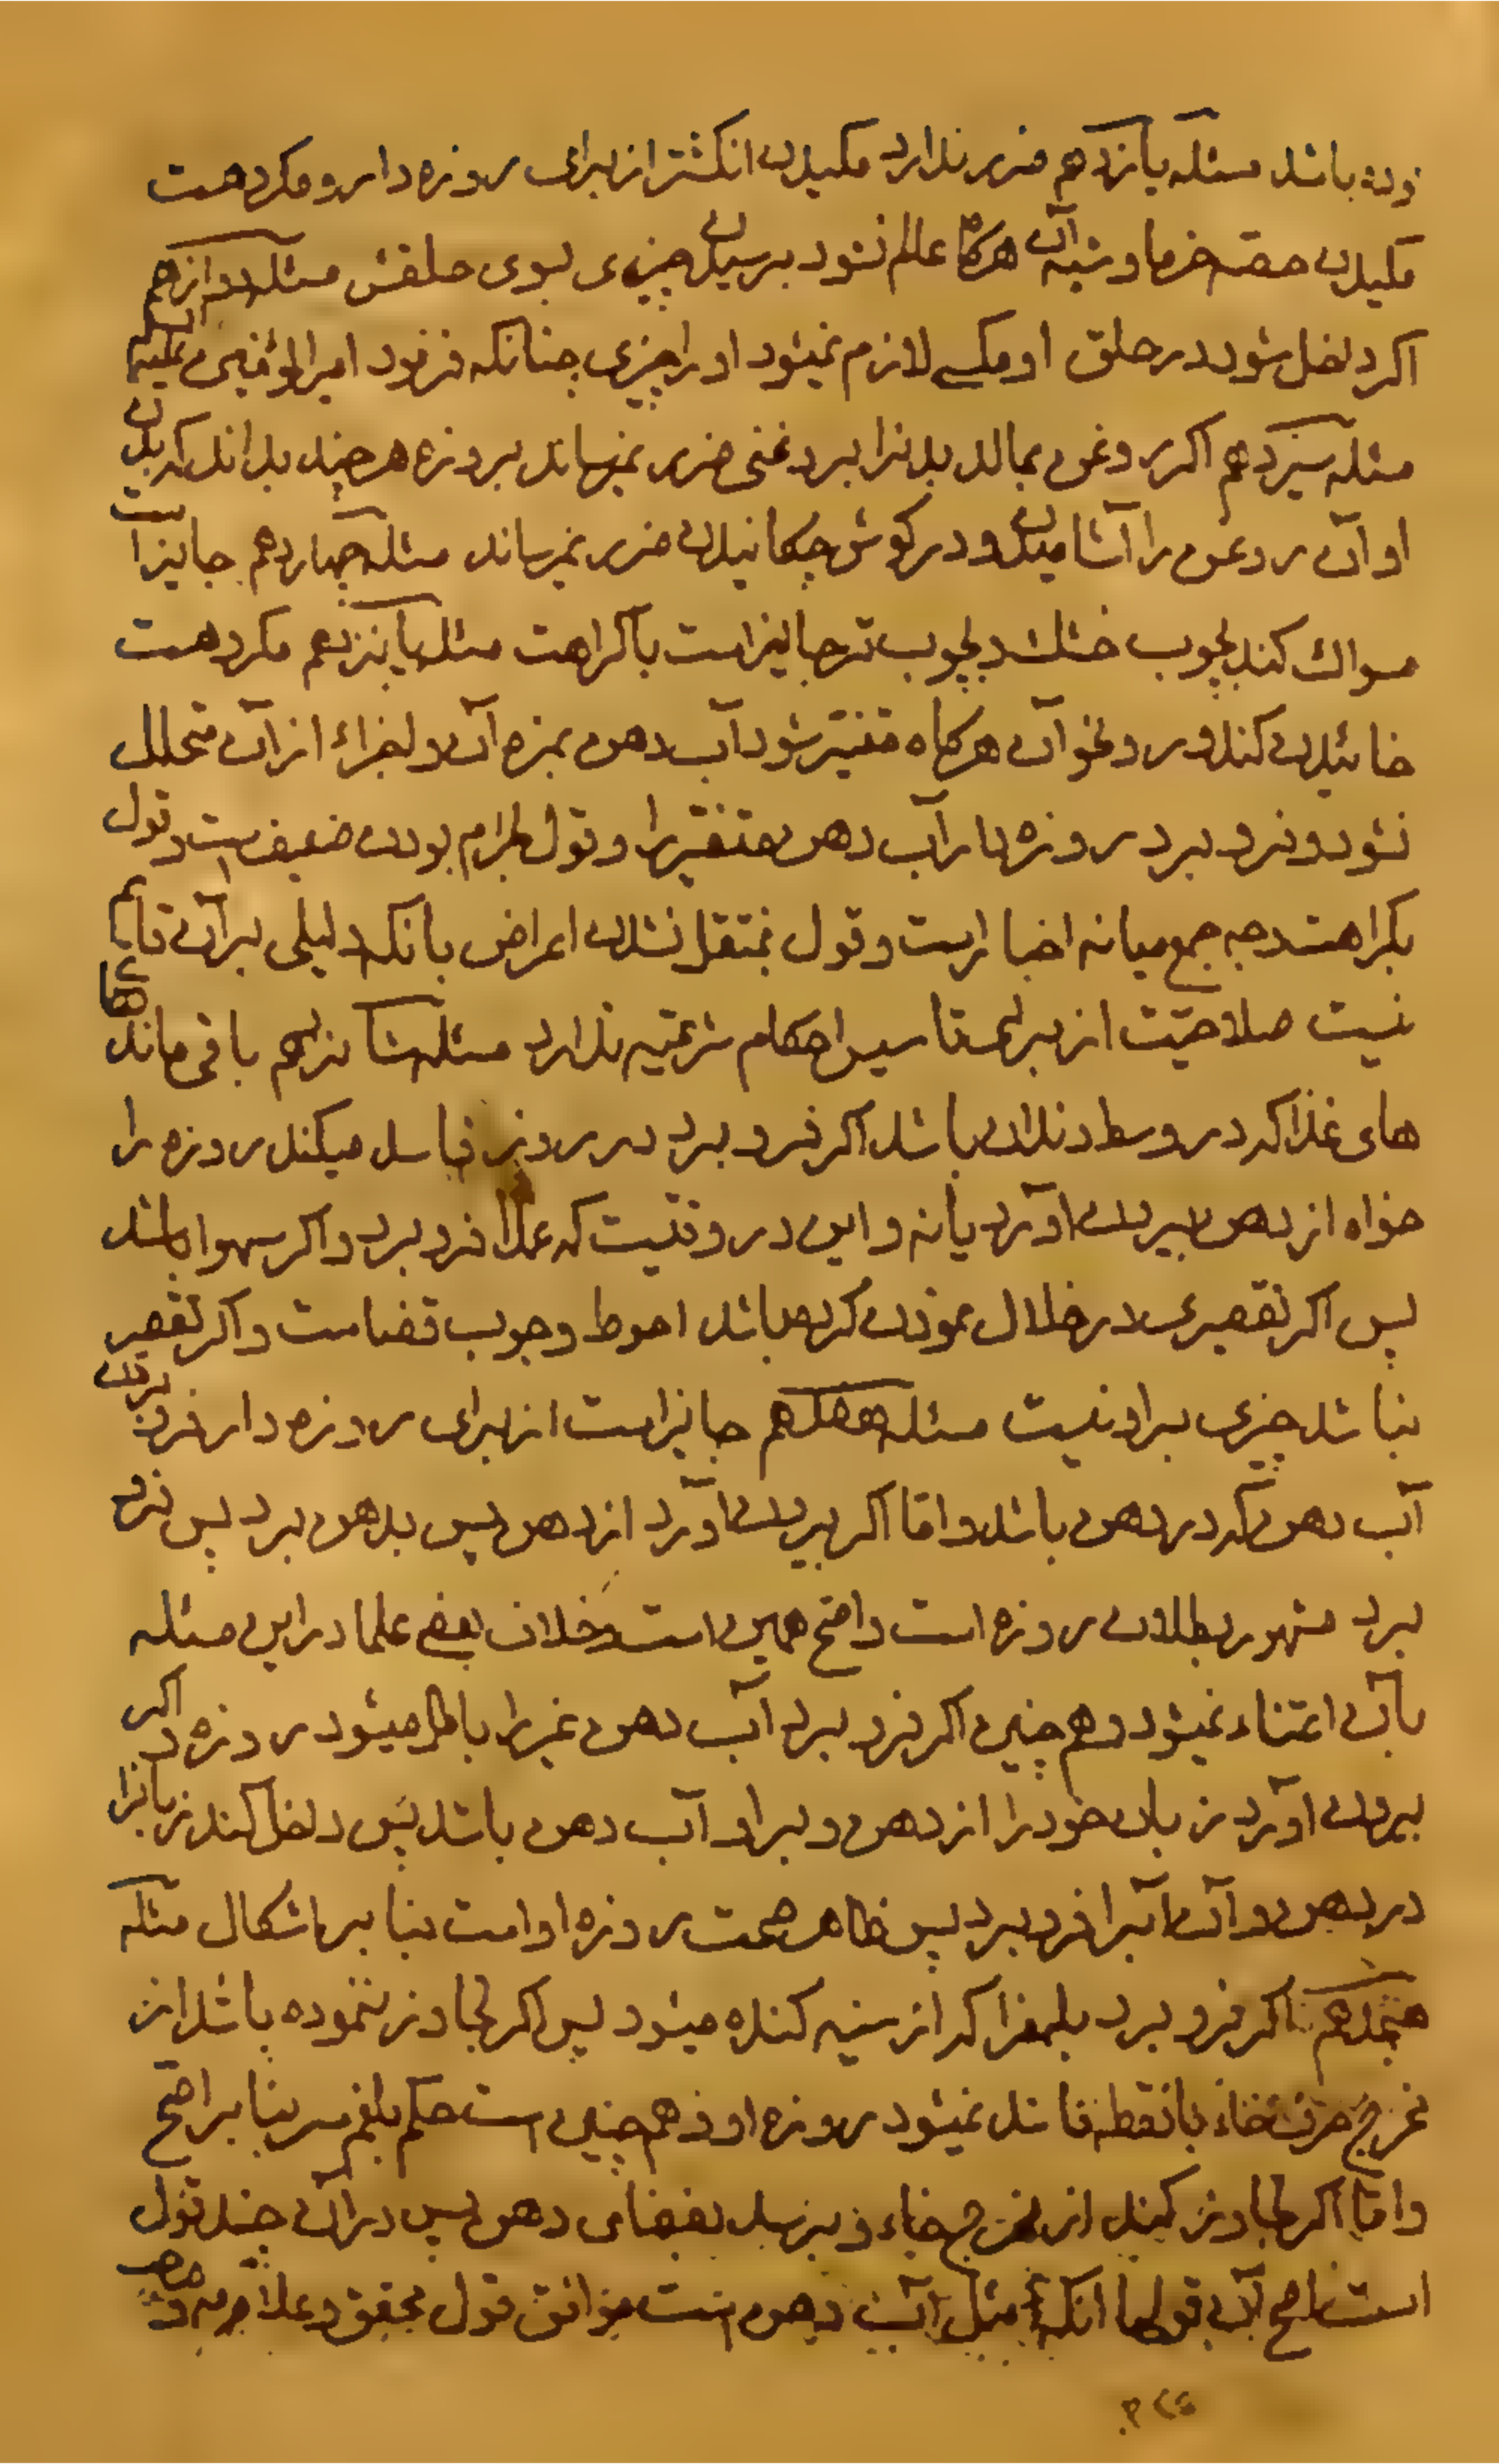 بوده باشد مسئله یازدهم ضرر ندارد مکیدن انکشتر از برای روزه دار و مکروهست
مکیدن هسته خرما و شبه آن هرکاه عالم نشود برسیدن چیزی بسوی حلقش مسئله دوازدهم
اکر داخل شود در حلق او مکسی لازم نمیشود او را چیزی چنانکه فرمود امیرالمؤمنین علیه السلام
مسئله سیزدهم اکر روغن بمالد بدنرا بروغنی ضرر نمیرساند بروزه هر چند بداند که بدن
او آن روغن را آشامیده و در کوش چکانیدن ضرر نمیرساند مسئله چهاردهم جایز است
مسواك کند بچوب خشك و بچوب تر جایز است با کراهت مسئله پانزدهم مکروهست
خائیدن کندر و نحو آن هرکاه متغیر شود آب دهن بمزه آن و اجزاء از آن متحلل
نشود و فرو برد روزه دار آب دهن متغیر را و قول بحرام بودن ضعیف است و قول
بکراهت وجه جمع میانه اخبار است و قول بمنتقل نشدن اعراض بانکه دلیلی بر آن قایم
نیست صلاحیت از برای تاسیس احکام شرعیه ندارد مسئله شانزدهم باقی مانده های
های غذا که در وسط دندان باشد اکر فرو برد در روز فاسد میکند روزه را
خواه از دهن بیرون اورد یا نه و این در وقتیست که عمدا فرو برد و اکر سهوا باشد
پس اکر تقصیری در خلال نمودن کرده باشد احوط وجوب قضا ست و اکر تقصیر
نباشد چیزی بر او نیست مسئله هفدهم جایز است از برای روزه دار فرو بردن
آب دهن که در دهن باشد و اما اکر بیرون اورد از دهن پس بدهن برد پس فرو
برد مشهور بطلان روزه است و اصح همین است و خلاف بعضی علما در این مسئله
بآن اعتناء نمیشود و هم چنین اکر فرو برد آب دهن غیر را باطل میشود روزه و اکر
بیرون اورد زبان خود را از دهن و بر او آب دهن باشد پس داخل کند زبانرا
در دهن و آن آبرا فرو برد پس ظاهر صحت روزه او است بنا بر اشکال مسئله
هیجدهم اکر فرو برد بلغمرا که از سینه کنده میشود پس اکر تجاوز ننموده باشد از
مخرج حرف خاء بانقطه فاسد نمیشود روزه او و هم چنین است حکم بلغم سر بنا بر اصح
و اما اکر تجاوز کند از مخرج خاء و برسد بفضای دهن پس در آن چند قول
است اصح آن قولها انکه مثل آب دهن است موافق قول محقق و علامه و